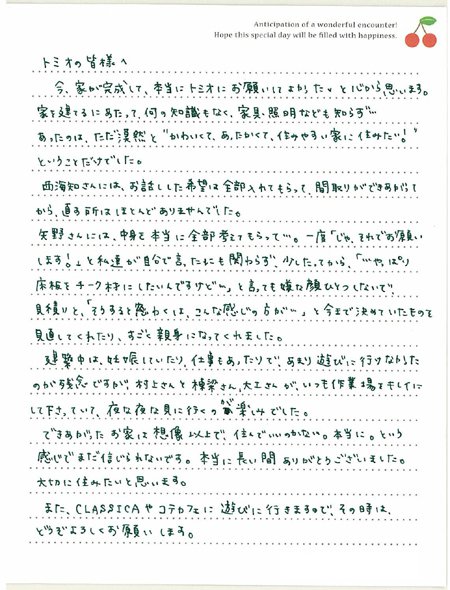 Anticipation of a wonderful encounter!
Hope this special day will be filled with happiness.
トミオの皆様へ
今、家が完成して、本当にトミオにお願いしてよかったなと心から思います。
家を建てるにあたって、何の知識もなく、家具・照明なども知らず…
あったのは、ただ漠然と“かわいくて、あったかくて、住みやすい家に住みたい!”
ということだけでした。
西海知さんには、お話しした希望は全部入れてもらって、間取りができあがって
から、直す所はほとんどありませんでした。
矢野さんには、中身を本当に全部考えてもらって…。一度「じゃ、それでお願い
します!」と私達が自分で言ったにも関わらず、少したってから、「…やっぱり
床板をチーク材にしたいんですけど…」と言っても嫌な顔ひとつしないで、
見積りと、「そうすると恐らくは、こんな感じの方が…」と今まで決めていたものを
見直してくれたり、すごく親身になってくれました。
建築中は、妊娠していたり、仕事もあったりで、あまり遊びに行けなかった
のが残念ですが、村上さんと棟梁さん、大工さんが、いつも作業場をキレイに
して下さっていて、夜な夜な見に行くのが楽しみでした。
できあがったお家は想像以上で、住んでいいのかな!本当に。という
感じでまだ信じられないです。本当に長い間ありがとうございました。
大切に住みたいと思います。
また、CLASSICAやコテカフェに遊びに行きますので、その時は、
どうぞよろしくお願いします。